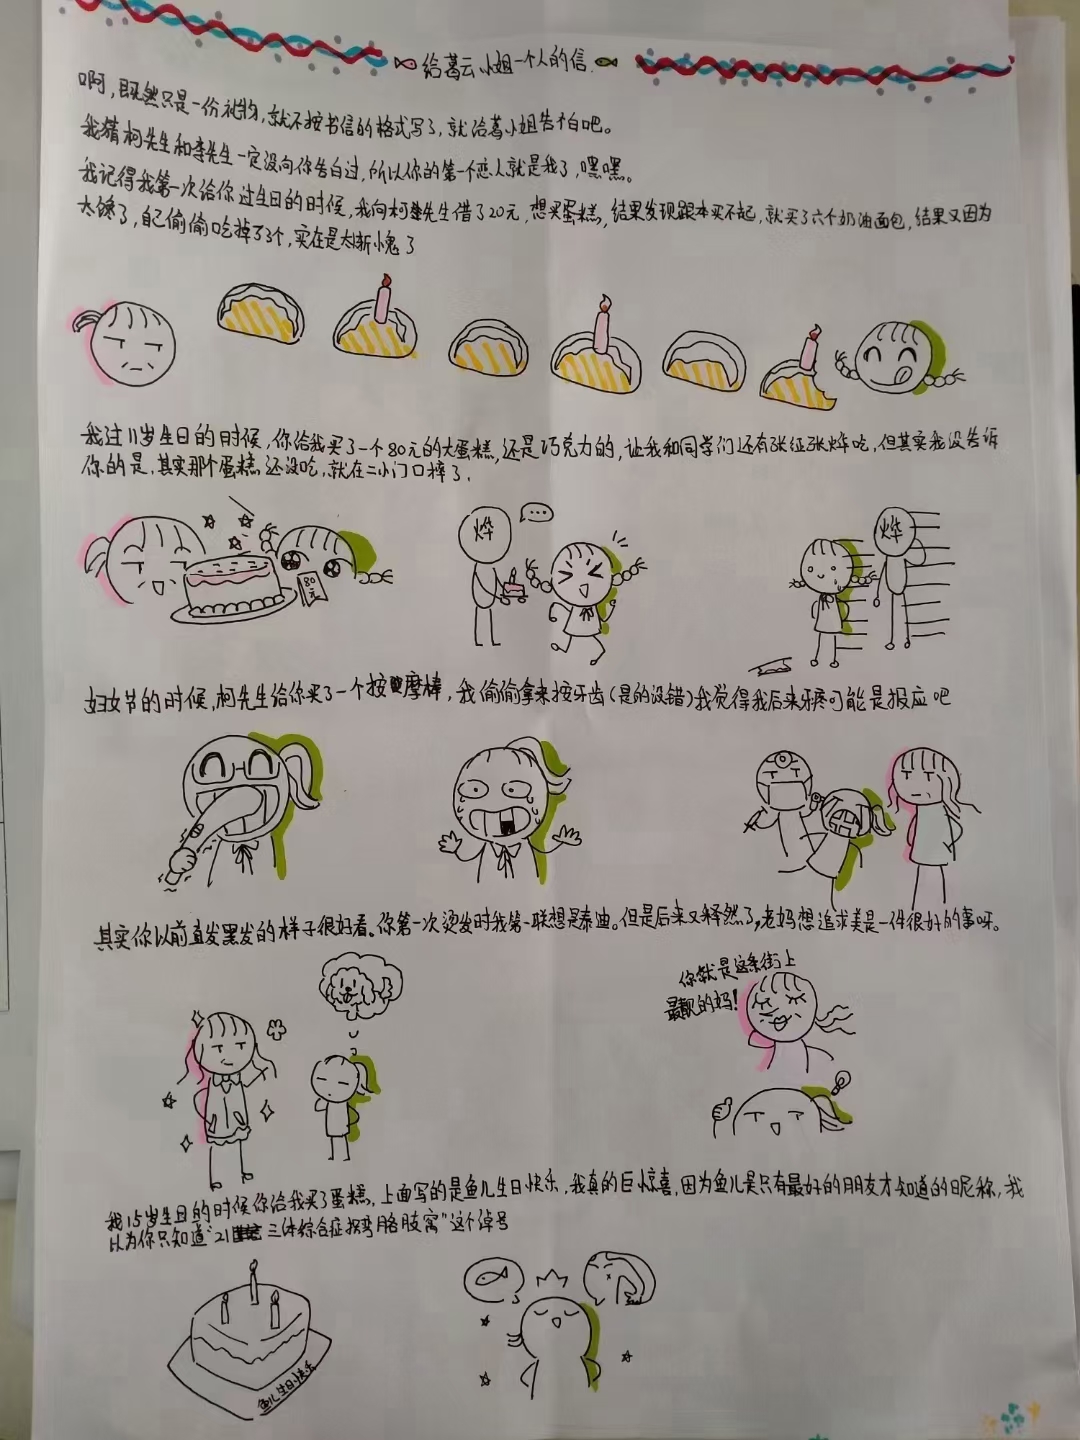 给葛云小姐一个人的信
啊,既然只是一份礼物,就不按书信的格式写了,就给葛小姐告个白吧。
我猜柯先生和李先生一定没向你告白过,所以你的第一个恋人就是我了,嘿嘿。
我记得我第一次给你过生日的时候,我向柯先生借了20元,想买蛋糕,结果发现跟本买不起,就买了六个奶油面包,结果又因为
太馋了,自己偷偷吃掉了3个,实在是太惭愧了
我过11岁生日的时候,你给我买了一个80元的大蛋糕,还是巧克力的,让我和同学们还有张征张烨吃,但其实我没告诉
你的是,其实那个蛋糕还没吃,就在二小门口摔了.
80元
烨
烨
妇女节的时候,柯先生给你买了一个按摩棒,我偷偷拿来按牙齿(是的没错)我觉得我后来牙疼可能是报应吧
其实你以前直发黑发的样子很好看。你第一次烫发时我第一联想是泰迪。但是后来又释然了,老妈想追求美是一件很好的事呀。
你就是这条街上
最靓的妈!
我15岁生日的时候你给我买了蛋糕,上面写的是鱼儿生日快乐,我真的巨惊喜,因为鱼儿是只有最好的朋友才知道的昵称,我
以为你只知道“21三体综合症拐弯胳肢窝”这个绰号
鱼儿生日快乐